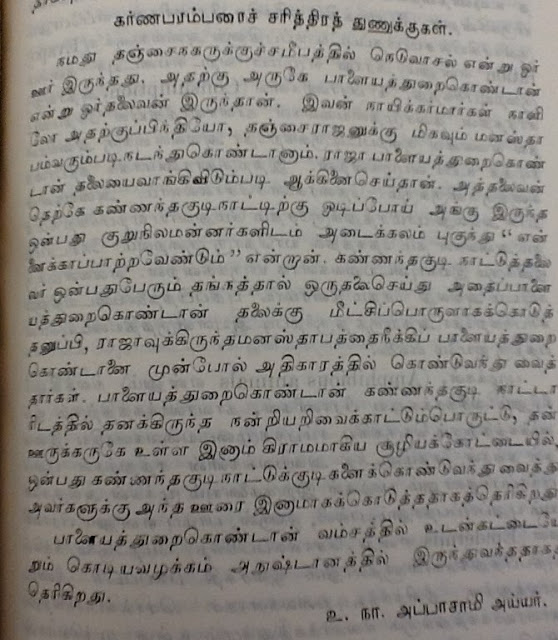 கர்ணபரம்பரைச் சரித்திரத் துணுக்குகள்.
நமது தஞ்சைநகருக்குச்சமீபத்தில் நெடுவாசல் என்று ஓர்
ஊர் இருந்தது. அதற்கு அருகே பாளையத்துறைகொண்டான்
என்று ஓர்தலைவன் இருந்தான். இவன் நாயிக்கர்மார்கள் நாளி
லோ அதற்குப்பிந்தியோ, தஞ்சைராஜனுக்கு மிகவும் மனஸ்தா
பம்வரும்படி நடந்துகொண்டானாம். ராஜா பாளையத்துறைகொண்
டான் தலையைவாங்கிவிடும்படி ஆக்கினைசெய்தான். அத்தலைவன்
தெற்கே கண்ணந்தகுடிநாட்டிற்கு ஓடிப்போய் அங்கு இருந்த
ஒன்பது குறுநிலமன்னர்களிடம் அடைக்கலம் புகுந்து "என்
னைக்காப்பாற்றவேண்டும்" என்றான். கண்ணந்தகுடி நாட்டுத்தலை
வர் ஒன்பதுபேரும் தங்கத்தால் ஒருதலைசெய்து அதைப்பாளை
யத்துறைகொண்டான் தலைக்கு மீட்சிப்பொருளாகக்கொடுத்
தனுப்பி, ராஜாவுக்கிருந்தமனஸ்தாபத்தைநீக்கிப் பாளையத்துறை
கொண்டானை முன்போல் அதிகாரத்தில் கொண்டுவந்து வைத்
தார்கள். பாளையத்துறைகொண்டான் கண்ணந்தகுடி நாட்டா
ரிடத்தில் தனக்கிருந்த நன்றியறிவைக்காட்டும்பொருட்டு, தன
ஊருக்கருகே உள்ள இனாம் கிராமமாகிய சூழியக்கோட்டையில்
ஒன்பது கண்ணந்தகுடிநாட்டுக்குடிகளைக்கொண்டுவந்து வைத்து
அவர்களுக்கு அந்த ஊரை இனாமாகக்கொடுத்ததாகத்தெரிகிறது
பாளையத்துறைகொண்டான் வம்சத்தில் உடன்கட்டையே
றும் கொடியவழக்கம் அநுஷ்டானத்தில் இருந்துவந்ததாகத்
தெரிகிறது.
உ. நா. அப்பாசாமி அய்யர்.